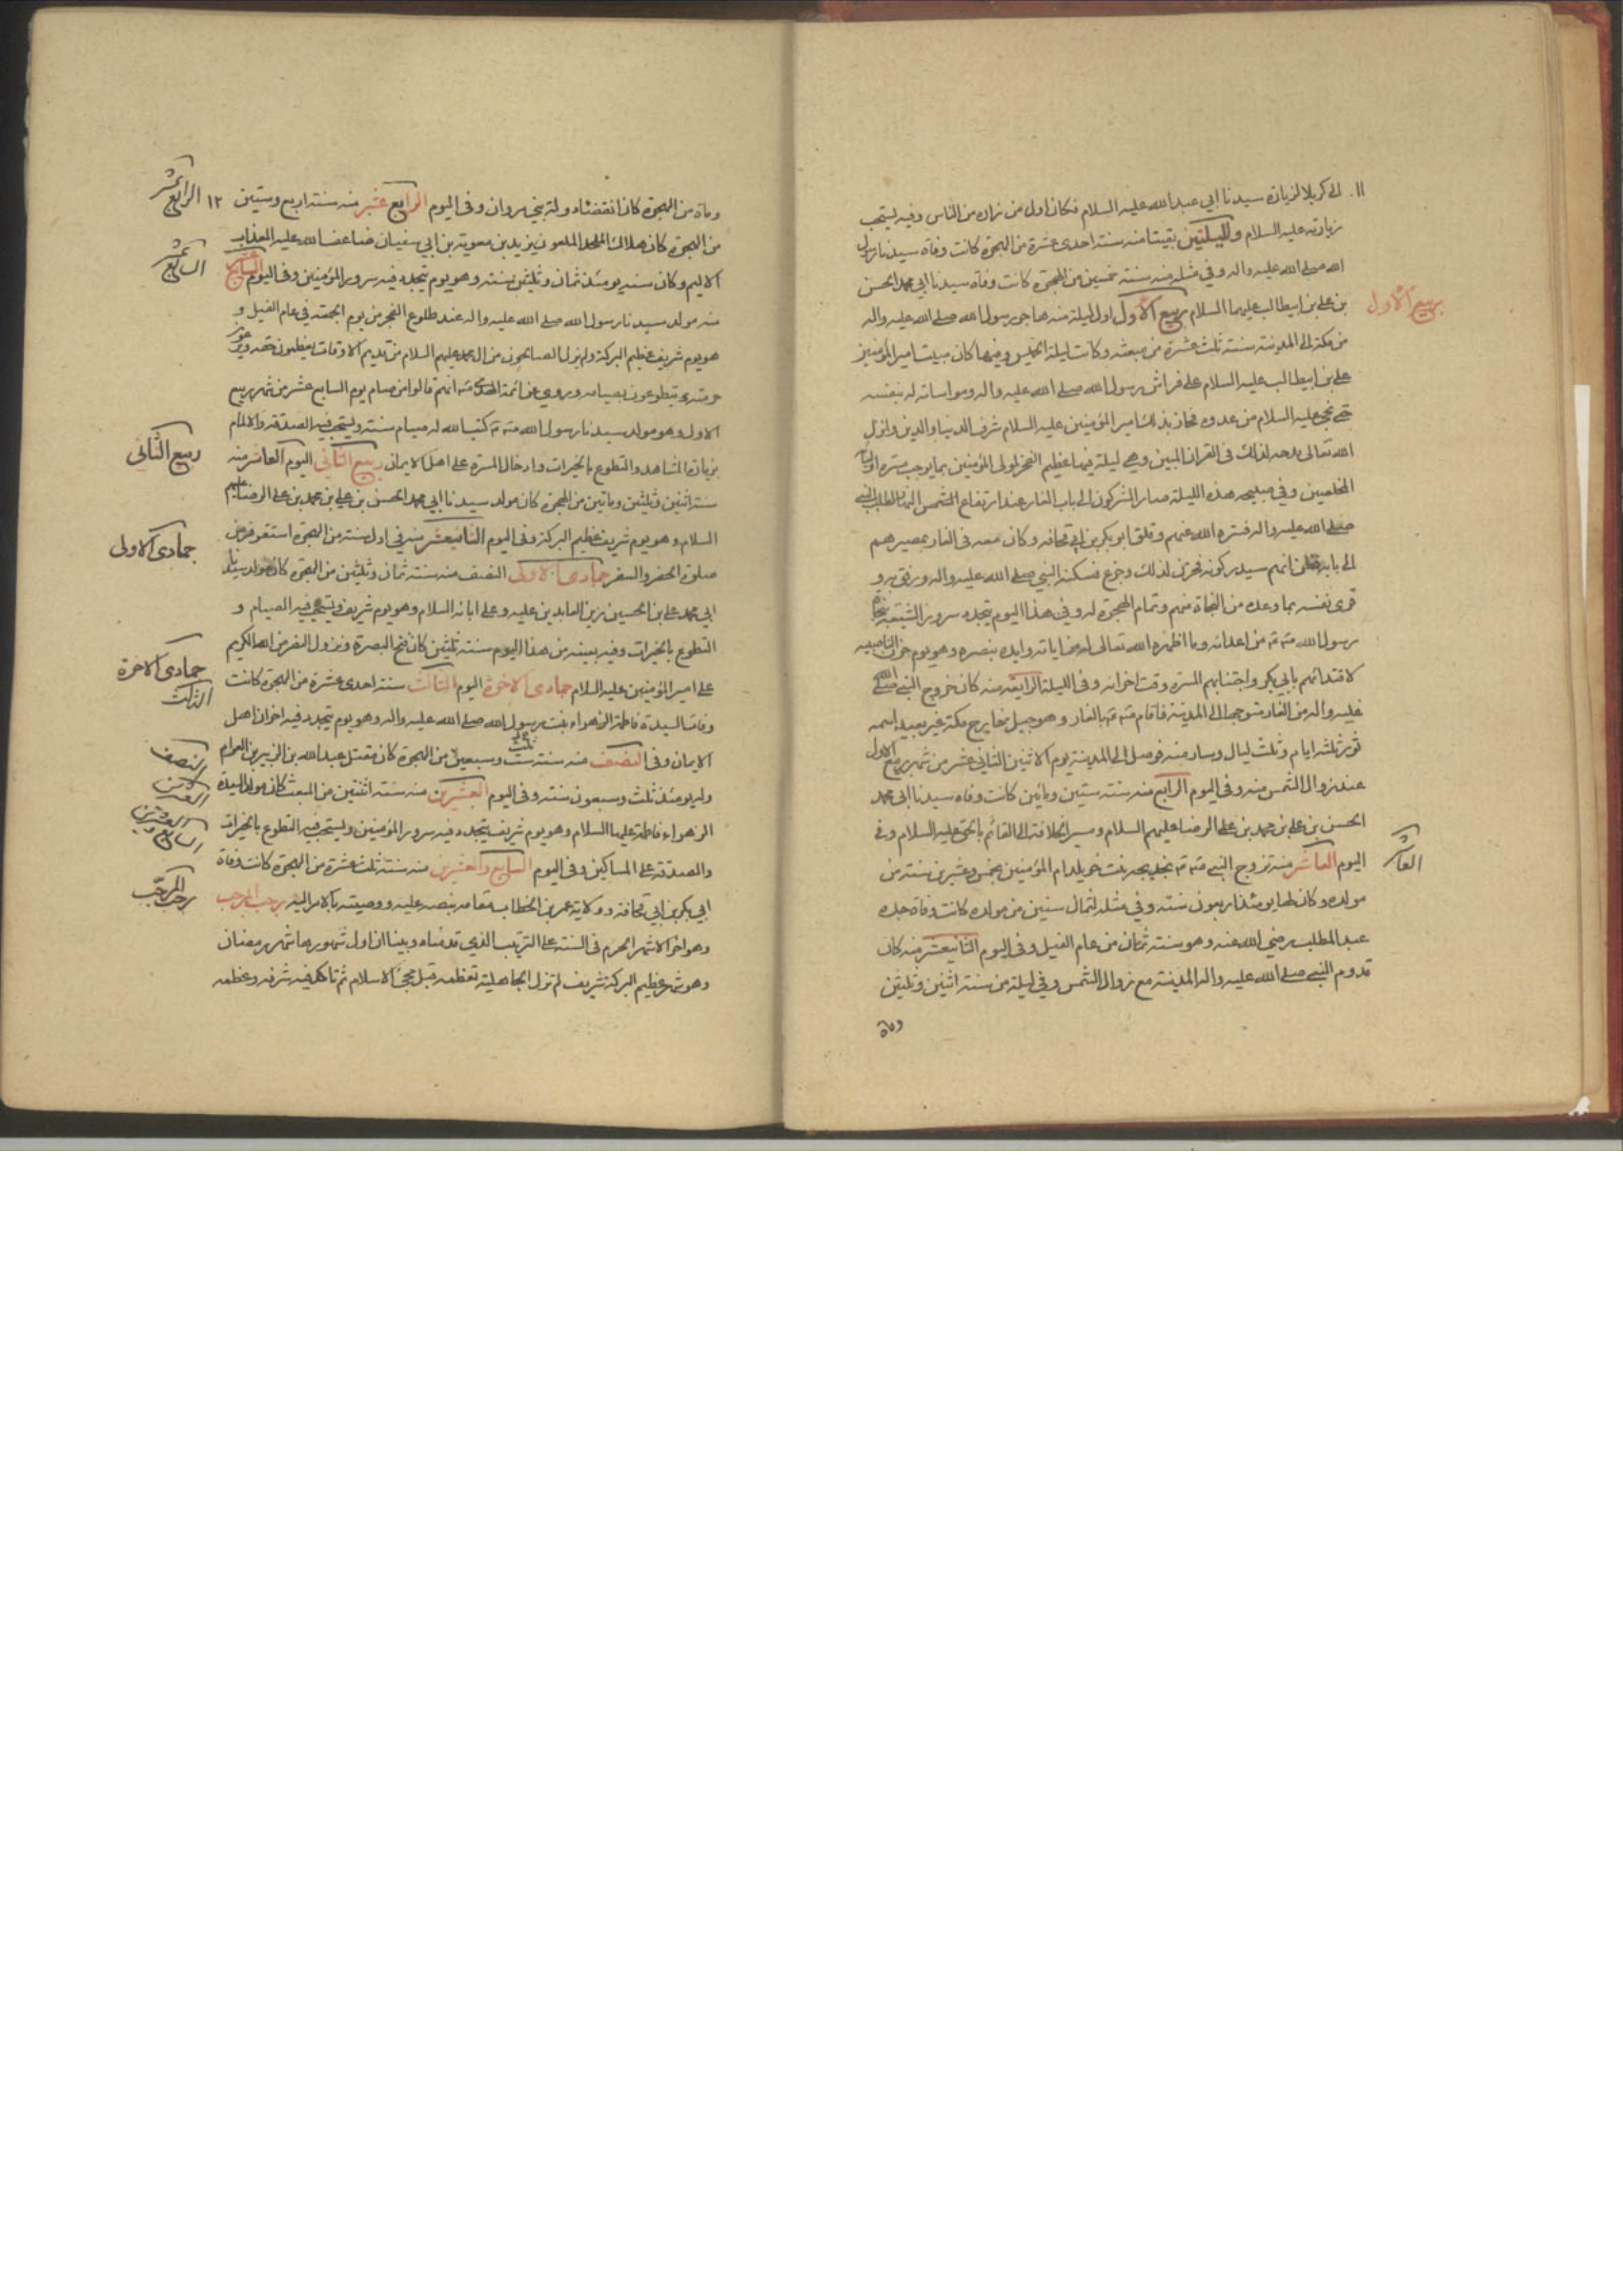 ١١. الى كربلا لزيارة سيدنا ابي عبد الله عليه السلام فكان اول من زاره من الناس وفيه يستحب
زيارته عليه السلام ولليلتين بقيتا منه سنة احدى عشرة من الهجرة كانت وفاة سيدنا رسول
الله صلى الله عليه واله وفي مثله منه سنة خمسين من الهجرة كانت وفاة سيدنا ابي محمد الحسن
بن علي بن ابيطالب عليهما السلام ربيع الاول اول ليلة منه هاجر رسول الله صلى الله عليه واله
ربيع الاول
من مكة الى المدينة سنة ثلث عشرة من مبعثه وكانت ليلة الخميس وفيها كان مبيت امير المؤمنين
علي بن ابيطالب عليه السلام على فراش رسول الله صلى الله عليه واله ومواساته له بنفسه
حتى نجى عليه السلام من عدوه فحاز بذلك امير المؤمنين عليه السلام شرف الدنيا والدين وانزل
الله تعالى مدحه لذلك في القران المبين وهي ليلة فيها عظيم الفخر لمولى المؤمنين بما يوجب مسرة اوليائه
المخلصين وفي صبيحة هذه الليلة صار المشركون الى باب الغار عند ارتفاع الشمس لطلب النبي
صلى الله عليه واله فستره الله عنهم وقلق ابو بكر بن ابي قحافه وكان معه في الغار بمصيرهم
الى بابه وظن انهم سيدركونه فحزن لذلك وجزع فسكنه النبي صلى الله عليه واله ورفق به و
قوى نفسه بما وعده من النجاة منهم وتمام الهجرة له وفي هذا اليوم يتجدد سرور الشيعة بنجاة
رسول الله من اعدائه وما اظهره الله تعالى من اياته وايده بنصره وهو يوم حزن الناصبيه
لاقتدائهم بابي بكر واجتنابهم المسرة وقت احزانه وفي الليلة الرابعة منه كان خروج النبي صلى الله
عليه واله من الغار متوجها الى المدينة فاقام بالغار وهو جبل بخارج مكة غير بعيد اسمه
ثور ثلثة ايام وثلث ليال وسار منه فوصل الى المدينة يوم الاثنين الثاني عشر من شهر ربيع الاول
عند زوال الشمس منه وفي اليوم الرابع منه سنة ستين وماتين كانت وفاه سيدنا ابي محمد
الحسن بن علي بن محمد بن علي الرضا عليهم السلام ومسير الخلافة الى القائم بالحق عليه السلام وفي
اليوم العاشر منه تزوج النبي بخديجه بنت خويلد ام المؤمنين بخمس وعشرين سنة من
العاشر
مولده وكان لها يومئذ اربعون سنة وفي مثله لثمان سنين من مولده كانت وفاة جده
عبد المطلب رضي الله عنه وهو سنة ثمان من عام الفيل وفي اليوم الثانيعشر منه كان
قدوم النبي صلى الله عليه واله المدينة مع زوال الشمس وفي ليلة من سنة اثنين وثلثين
وماة
وماة من الهجرة كان انقضاء دولة بني مروان وفي اليوم الرابع عشر منه سنة اربع وستين ١٢
الرابع عشر
من الهجرة كان هلاك الملحد الملعون يزيد بن معوية بن ابي سفيان ضاعف الله عليه العذاب
الاليم وكان سنه يومئذ ثمان وثلثين سنة وهو يوم يتجدد فيه سرور المؤمنين وفي اليوم السابع عشر
السابع عشر
منه مولد سيدنا رسول الله صلى الله عليه واله عند طلوع الفجر من يوم الجمعة في عام الفيل و
هو يوم شريف عظيم البركة ولم يزل الصالحون من ال محمد عليهم السلام من قديم الاوقات يعظمون حقه ويرعون
حرمته ويتطوعون بصيامه وروي عن ائمة الهدى انهم قالوا من صام يوم السابع عشر من شهر ربيع
الاول وهو مولد سيدنا رسول الله كتب الله له صيام سنة ويستحب فيه الصدقة والالمام
بزيارة المشاهد والتطوع بالخيرات وادخال المسرة على اهل الايمان ربيع الثاني اليوم العاشر منه
ربيع الثاني
سنة اثنين وثلثين وماتين من الهجرة كان مولد سيدنا ابي محمد الحسن بن علي بن محمد بن علي الرضا عليهم
السلام وهو يوم شريف عظيم البركة وفي اليوم الثانيعشر منه في اول سنة من الهجرة استقر فرض
صلوة الحضر والسفر جمادى الاولى النصف منه سنة ثمان وثلثين من الهجرة كان مولد سيدنا
جمادى الاولى
ابي محمد علي بن الحسين زين العابدين عليه وعلى ابائه السلام وهو يوم شريف ويستحب فيه الصيام و
التطوع بالخيرات وفيه بعينه من هذا اليوم سنة ثلثين كان فتح البصرة ونزول النصر من الله الكريم
على امير المؤمنين عليه السلام جمادى الاخرة اليوم الثالث سنة احدى عشرة من الهجرة كانت
جمادى الاخرة
الثالث
وفات السيدة فاطمة الزهراء بنت رسول الله صلى الله عليه واله وهو يوم يتجدد فيه احزان اهل
الايمان وفي النصف منه سنة ست وسبعين من الهجرة كان مقتل عبد الله بن الزبير بن العوام
ثلث
النصف
وله يومئذ ثلث وسبعون سنة وفي اليوم العشرين منه سنة اثنتين من المبعث كان مولد السيدة
العشرين
الزهراء فاطمة عليها السلام وهو يوم شريف يتجدد فيه سرور المؤمنين ويستحب فيه التطوع بالخيرات
والصدقة على المساكين وفي اليوم السابع والعشرين منه سنة ثلث عشرة من الهجرة كانت وفاة
السابع والعشرين
ابي بكر بن ابي قحافه وولاية عمر بن الخطاب مقامه بنصه عليه ووصيته بالامر اليه رجب المرجب
رجب المرجب
وهو اخر الاشهر الحرم في السنة على الترتيب الذي قدمناه وبينا ان اول شهورها شهر رمضان
وهو شهر عظيم البركة شريف لم تزل الجاهلية تعظمه قبل مجئ الاسلام ثم تاكد فيه شرفه وعظمه